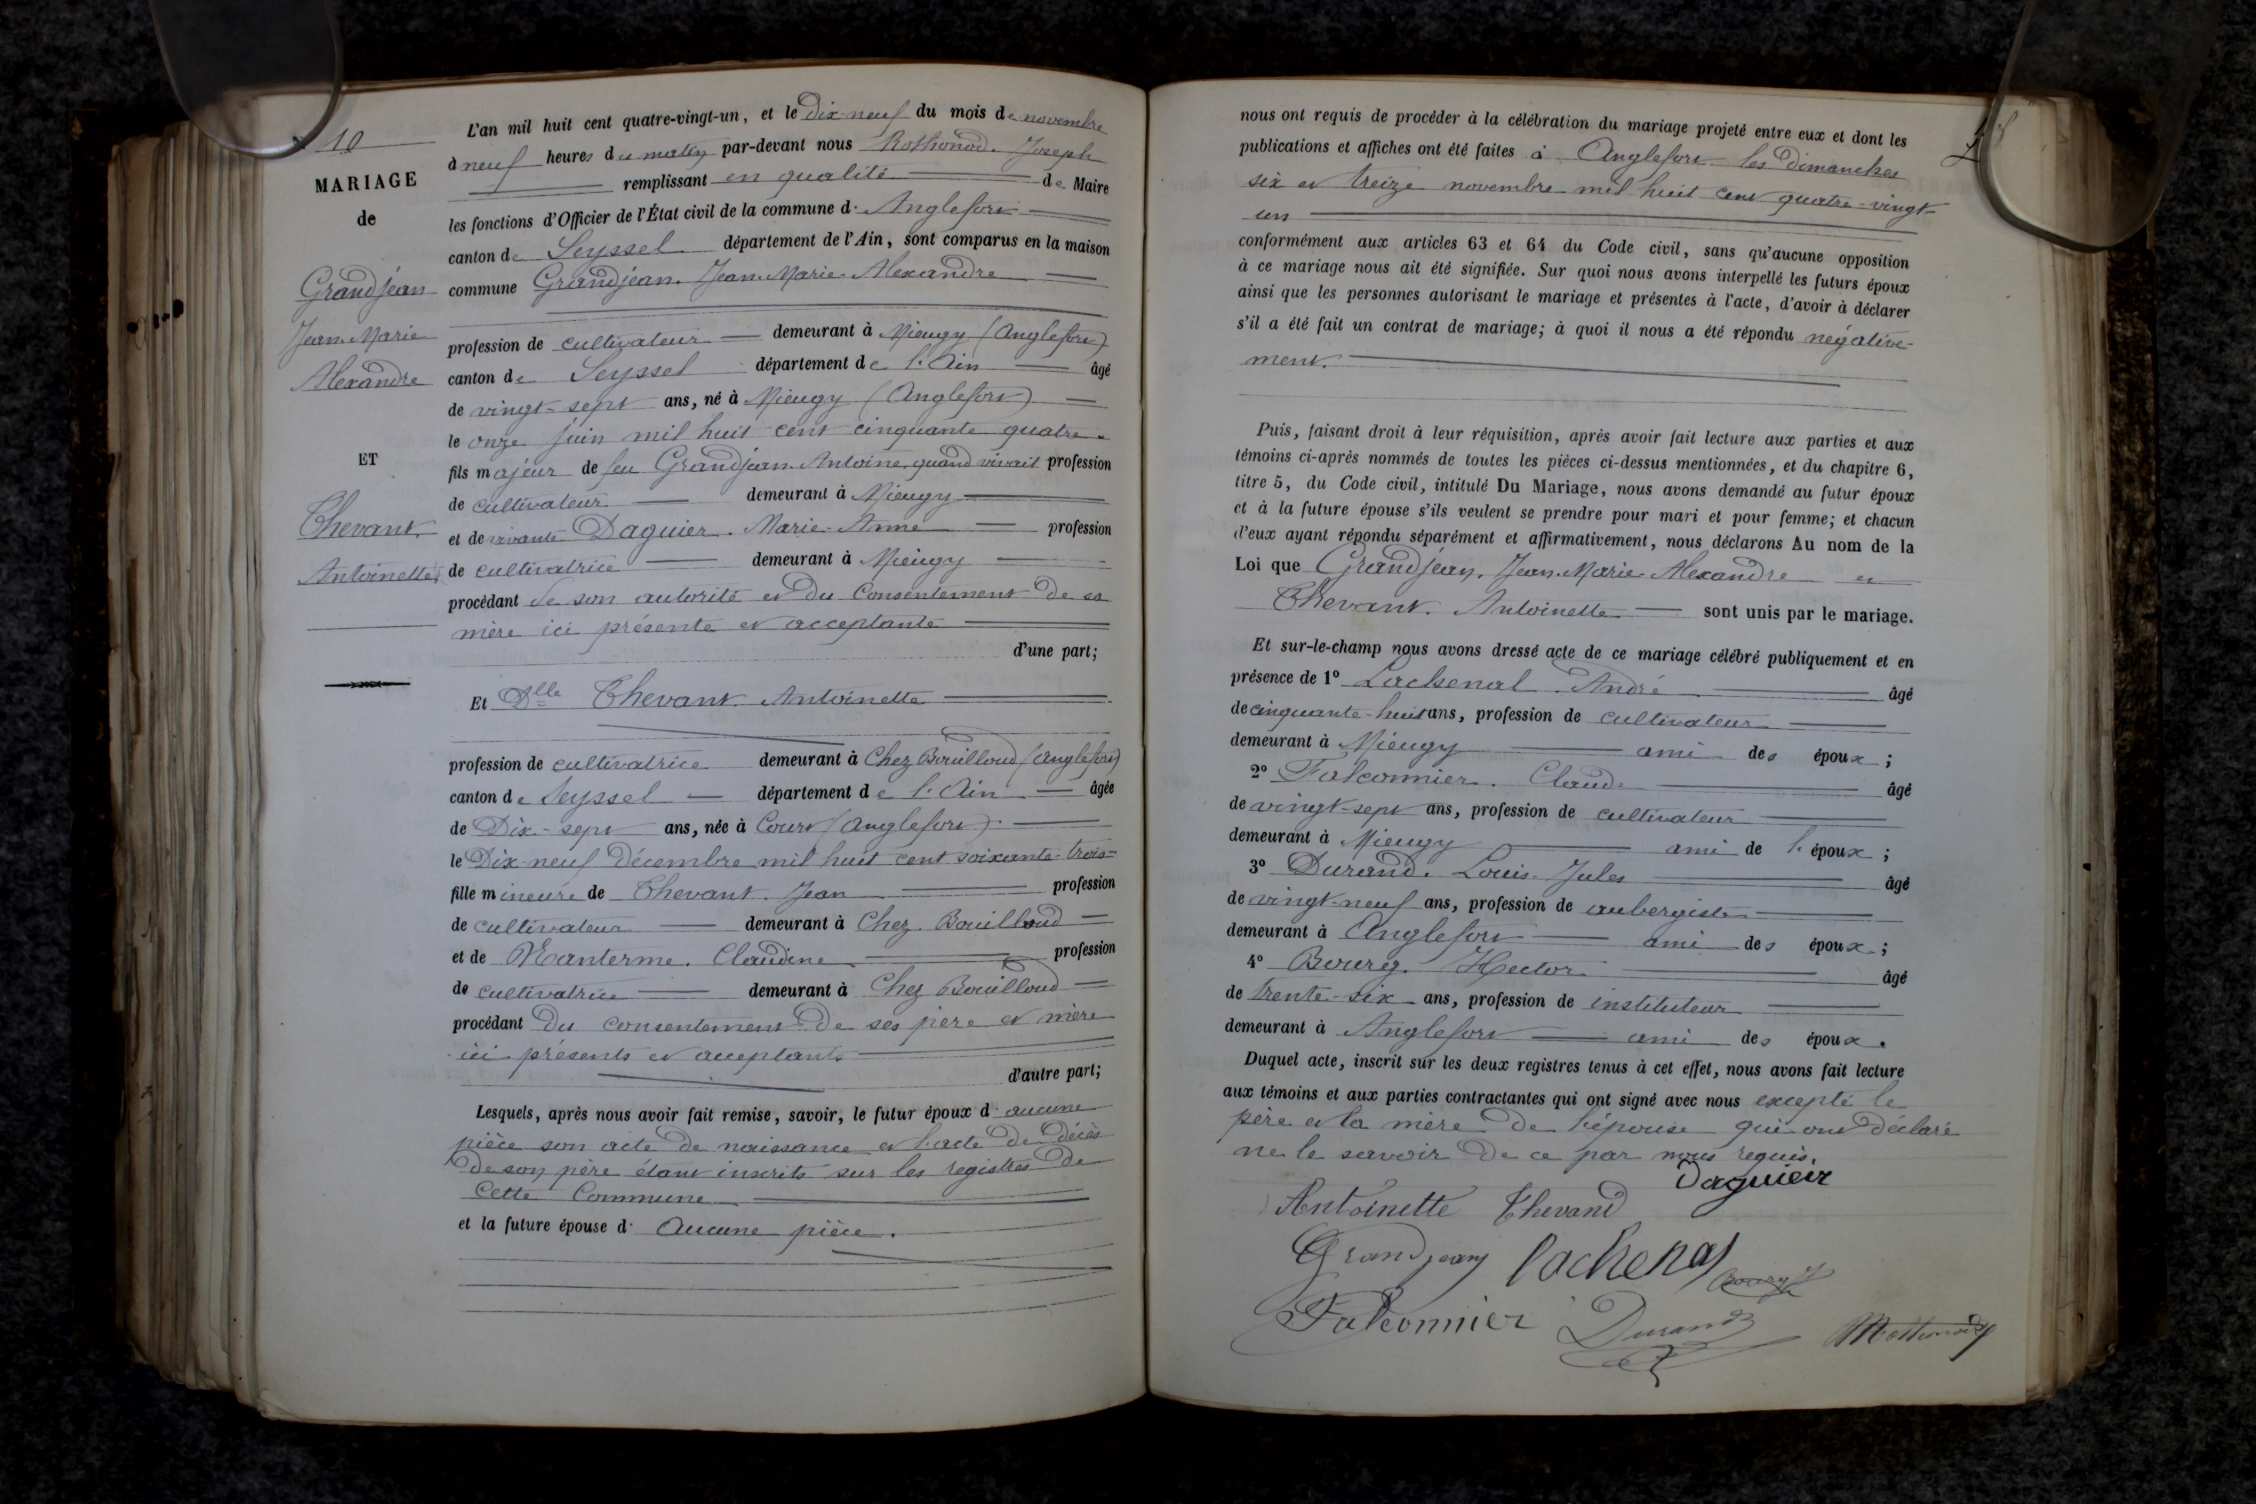 10
MARIAGE
de
Grandjean
Jean-Marie
Alexandre
ET
Thevant.
Antoinette
L'an mil huit cent quatre-vingt-un, et le Dix-neuf du mois de novembre
à neuf heures du matin par-devant nous Rothonod. Joseph
remplissant en qualité de Maire
les fonctions d'Officier de l'État civil de la commune d'Anglefort
canton de Seyssel département de l'Ain, sont comparus en la maison
commune Grandjean. Jean-Marie-Alexandre
profession de cultivateur demeurant à Mieugy (Anglefort)
canton de Seyssel département de l'Ain âgé
de vingt-sept ans, né à Mieugy (Anglefort)
le onze juin mil huit cent cinquante quatre
fils majeur de feu Grandjean Antoine, quand vivait profession
de cultivateur demeurant à Mieugy
et de vivante Daguier. Marie-Anne profession
de cultivatrice demeurant à Mieugy
procédant de son autorité et du consentement de sa
mère ici présente et acceptante
d'une part;
Et Dlle Thevant. Antoinette
profession de cultivatrice demeurant à Chez Bouilloud (Anglefort)
canton de Seyssel département de l'Ain âgée
de Dix-sept ans, née à Court (Anglefort)
le Dix-neuf Décembre mil huit cent soixante-trois
fille mineure de Thevant. Jean profession
de cultivateur demeurant à Chez Bouilloud
et de Manterme. Claudine profession
de cultivatrice demeurant à Chez Bouilloud
procédant Du consentement De ses père et mère
ici présents et acceptants
d'autre part;
Lesquels, après nous avoir fait remise, savoir, le futur époux d'aucune
pièce son acte De naissance et l'acte De Décès
De son père étant inscrits sur les registres De
cette Commune
et la future épouse d'Aucune pièce.
nous ont requis de procéder à la célébration du mariage projeté entre eux et dont les
publications et affiches ont été faites à Anglefort les Dimanches
six et treize novembre mil huit cent quatre-vingt-
un
conformément aux articles 63 et 64 du Code civil, sans qu'aucune opposition
à ce mariage nous ait été signifiée. Sur quoi nous avons interpellé les futurs époux
ainsi que les personnes autorisant le mariage et présentes à l'acte, d'avoir à déclarer
s'il a été fait un contrat de mariage; à quoi il nous a été répondu négative-
ment.
Puis, faisant droit à leur réquisition, après avoir fait lecture aux parties et aux
témoins ci-après nommés de toutes les pièces ci-dessus mentionnées, et du chapitre 6,
titre 5, du Code civil, intitulé Du Mariage, nous avons demandé au futur époux
et à la future épouse s'ils veulent se prendre pour mari et pour femme; et chacun
d'eux ayant répondu séparément et affirmativement, nous déclarons Au nom de la
Loi que Grandjean. Jean-Marie-Alexandre et
Thevant. Antoinette sont unis par le mariage.
Et sur-le-champ nous avons dressé acte de ce mariage célébré publiquement et en
présence de 1° Lachenal. André âgé
de cinquante-huit ans, profession de cultivateur
demeurant à Mieugy ami des époux;
2° Falconnier. Claude âgé
de vingt-sept ans, profession de cultivateur
demeurant à Mieugy ami de l'époux;
3° Durand. Louis-Jules âgé
de vingt-neuf ans, profession de aubergiste
demeurant à Anglefort ami des époux;
4° Bourg. Hector âgé
de trente-six ans, profession de instituteur
demeurant à Anglefort ami des époux.
Duquel acte, inscrit sur les deux registres tenus à cet effet, nous avons fait lecture
aux témoins et aux parties contractantes qui ont signé avec nous excepté le
père et la mère De l'épouse qui ont déclaré
ne le savoir De ce par nous requis.
Daguieir
Antoinette Thevand
Grandjean Lachenal
Falconnier Durand